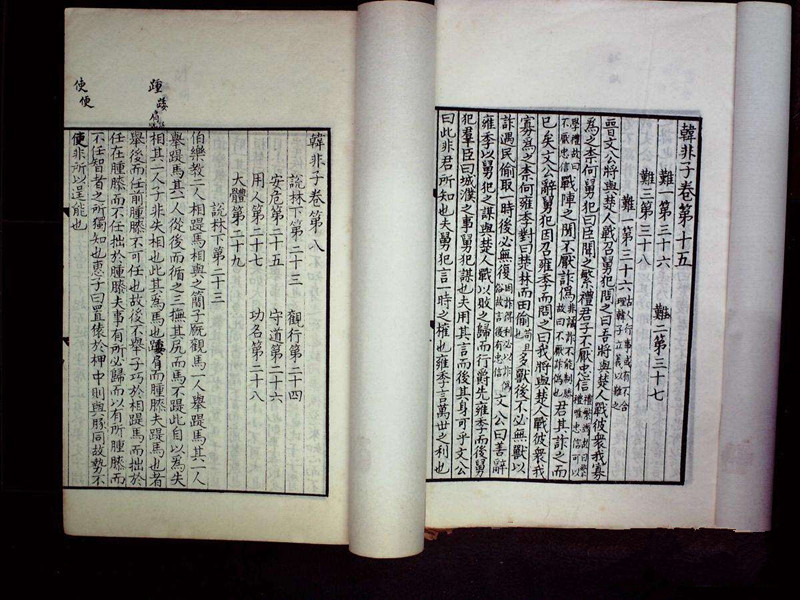 韓非子卷第十五
難一第三十六　難二第三十七
難三第三十八
難一第三十六 古人行事或有不合理韓子立義以難之
晉文公將與楚人戰召舅犯問之曰吾將與楚人戰彼衆我寡
為之柰何舅犯曰臣聞之繁禮君子不厭忠信
不厭忠信戰陣之間不厭詐偽君其詐之而
已矣文公辭舅犯因召雍季而問之曰我將與楚人戰彼衆我
寡為之柰何雍季對曰焚林而田偷取多獸後不必無獸以
詐遇民偷取一時後必無復文公曰善辭
雍季以舅犯之謀與楚人戰以敗之歸而行爵先雍季而後舅
犯羣臣曰城濮之事舅犯謀也夫用其言而後其身可乎文公
曰此非君所知也夫舅犯言一時之權也雍季言萬世之利也
韓非子卷第八
說林下第二十三　觀行第二十四
安危第二十五　守道第二十六
用人第二十七　功名第二十八
大體第二十九
說林下第二十三
伯樂教二人相踶馬相與之簡子厩觀馬一人舉踶馬其一人
舉踶馬其一人從後而循之三撫其尻而馬不踶此自以為失
相其一人曰子非失相也此其為馬也踒肩而腫膝夫踶馬也者
舉後而任前腫膝不可任也故後不舉子巧於相踶馬而拙於
任在腫膝而不任拙於腫膝夫事有所必歸而以有所腫膝而
不任智者之所獨知也惠子曰置猨於柙中則與豚同故勢不
便非所以逞能也
踵
使便